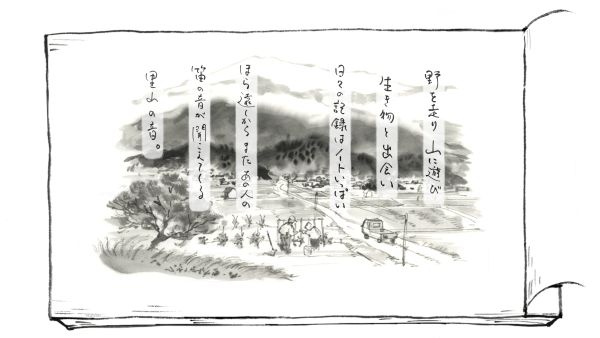 野を走り 山に遊び
生き物と出会い
日々の記録はノートいっぱい
ほら遠くからまたあの人の
笛の音が聞こえてくる
里山の音。